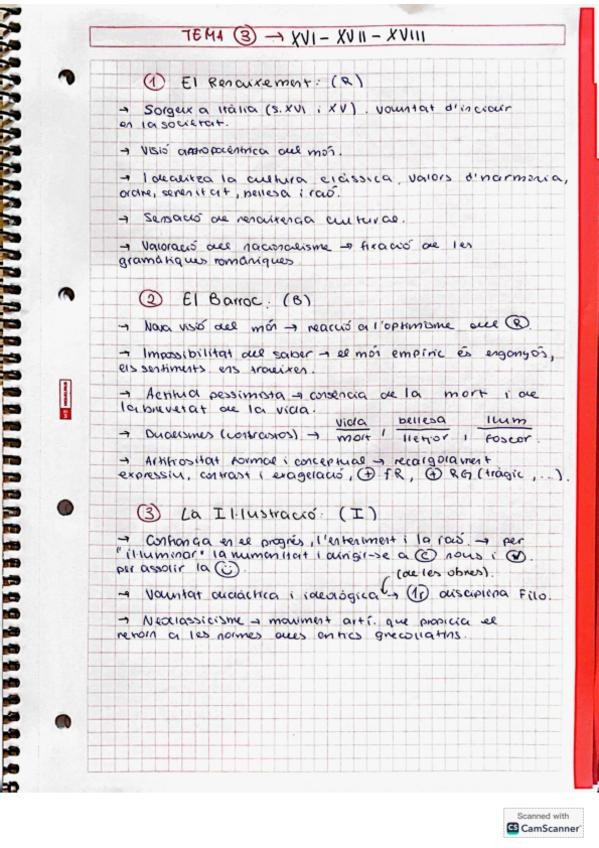 TEMA ③ → XVI - XVII - XVIII
① El Renaixement: (R)
→ Sorgeix a Itàlia (s. XVI i XV). Voluntat d'incidir
en la societat.
→ Visió antropocèntrica del món.
→ Idealitza la cultura clàssica, valors d'harmonia,
ordre, serenitat, bellesa i raó.
→ Sensació de renaixença cultural.
→ Valoració del nacionalisme → fixació de les
gramàtiques romàniques
② El Barroc: (B)
→ Nova visió del món → reacció a l'optimisme del Ⓡ.
→ Impossibilitat del saber → el món empíric és enganyós,
els sentiments ens traeixen.
→ Actitud pessimista → consència de la mort i de
la brevetat de la vida.
→ Dualismes (contrastos) → vida/mort, bellesa/lletjor, llum/foscor.
→ Artifiositat formal i conceptual → recargolament
expressiu, contrast i exageració, ⊕ fR, ⊕ RG (tràgic, ...).
③ La Il·lustració: (I)
→ Confiança en el progrés, l'enteniment i la raó. → per
"il·luminar" la humanitat i dirigir-se a Ⓒ nous i
per assolir la ☺.
(de les obres).
→ Voluntat didàctica i ideològica → disciplina Filo.
→ Neoclassicisme → moviment artí. que propicia el
retorn a les normes dels antics grecollatins.
Scanned with
CS CamScanner